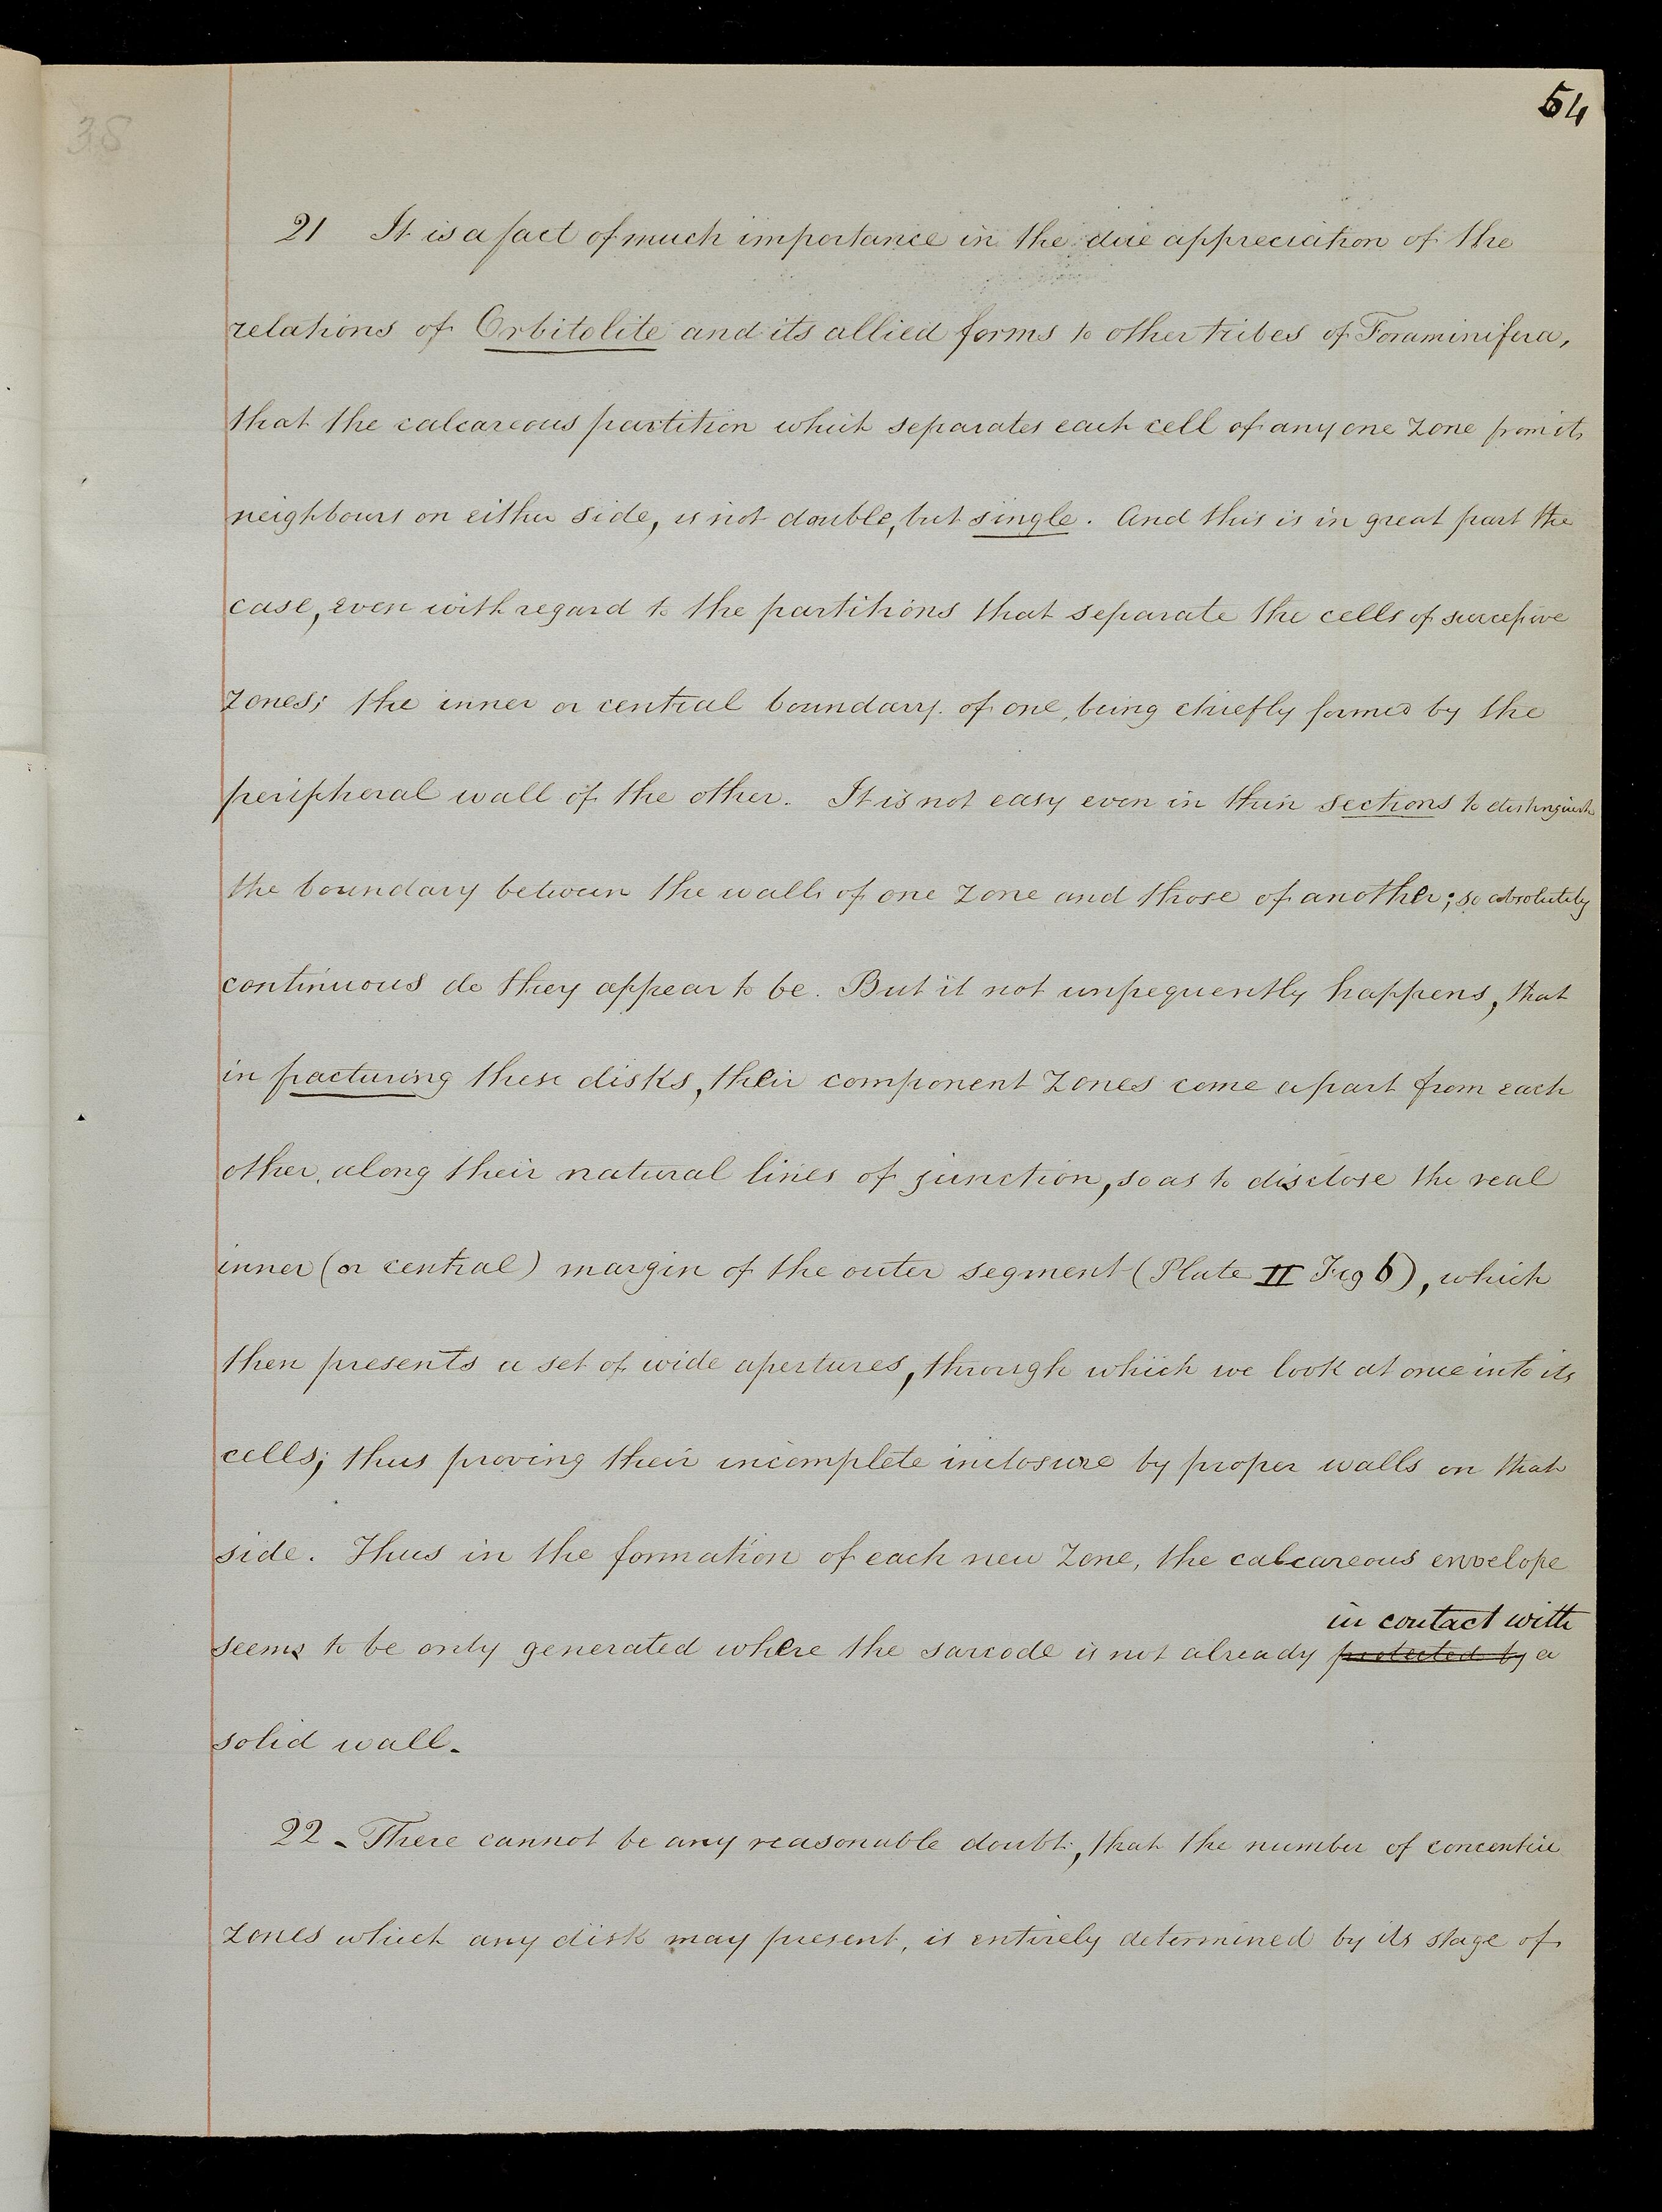 54
38
21 It is a fact of much importance in the due appreciation of the
relations of Orbitolite and its allied forms to other tribes of Foraminifera,
that the calcareous partition which separates each cell of any one zone from its
neighbours on either side, is not double, but single. And this is in great part the
case, even with regard to the partitions that separate the cells of successive
zones; the inner or central boundary of one, being chiefly formed by the
peripheral wall of the other. It is not easy even in thin sections to distinguish
the boundary between the walls of one zone and those of another; so absolutely
continuous do they appear to be. But it not unfrequently happens, that
in fracturing these disks, their component zones come apart from each
other, along their natural lines of junction, so as to disclose the real
inner (or central) margin of the outer segment (Plate II Fig 6), which
then presents a set of wide apertures, through which we look at once into its
cells; thus proving their incomplete inclosure by proper walls on that
side. Thus in the formation of each new zone, the calcareous envelope
in contact with
seems to be only generated where the sarcode is not already protected by a
solid wall.
22 - There cannot be any reasonable doubt, that the number of concentric
zones which any disk may present, is entirely determined by its stage of